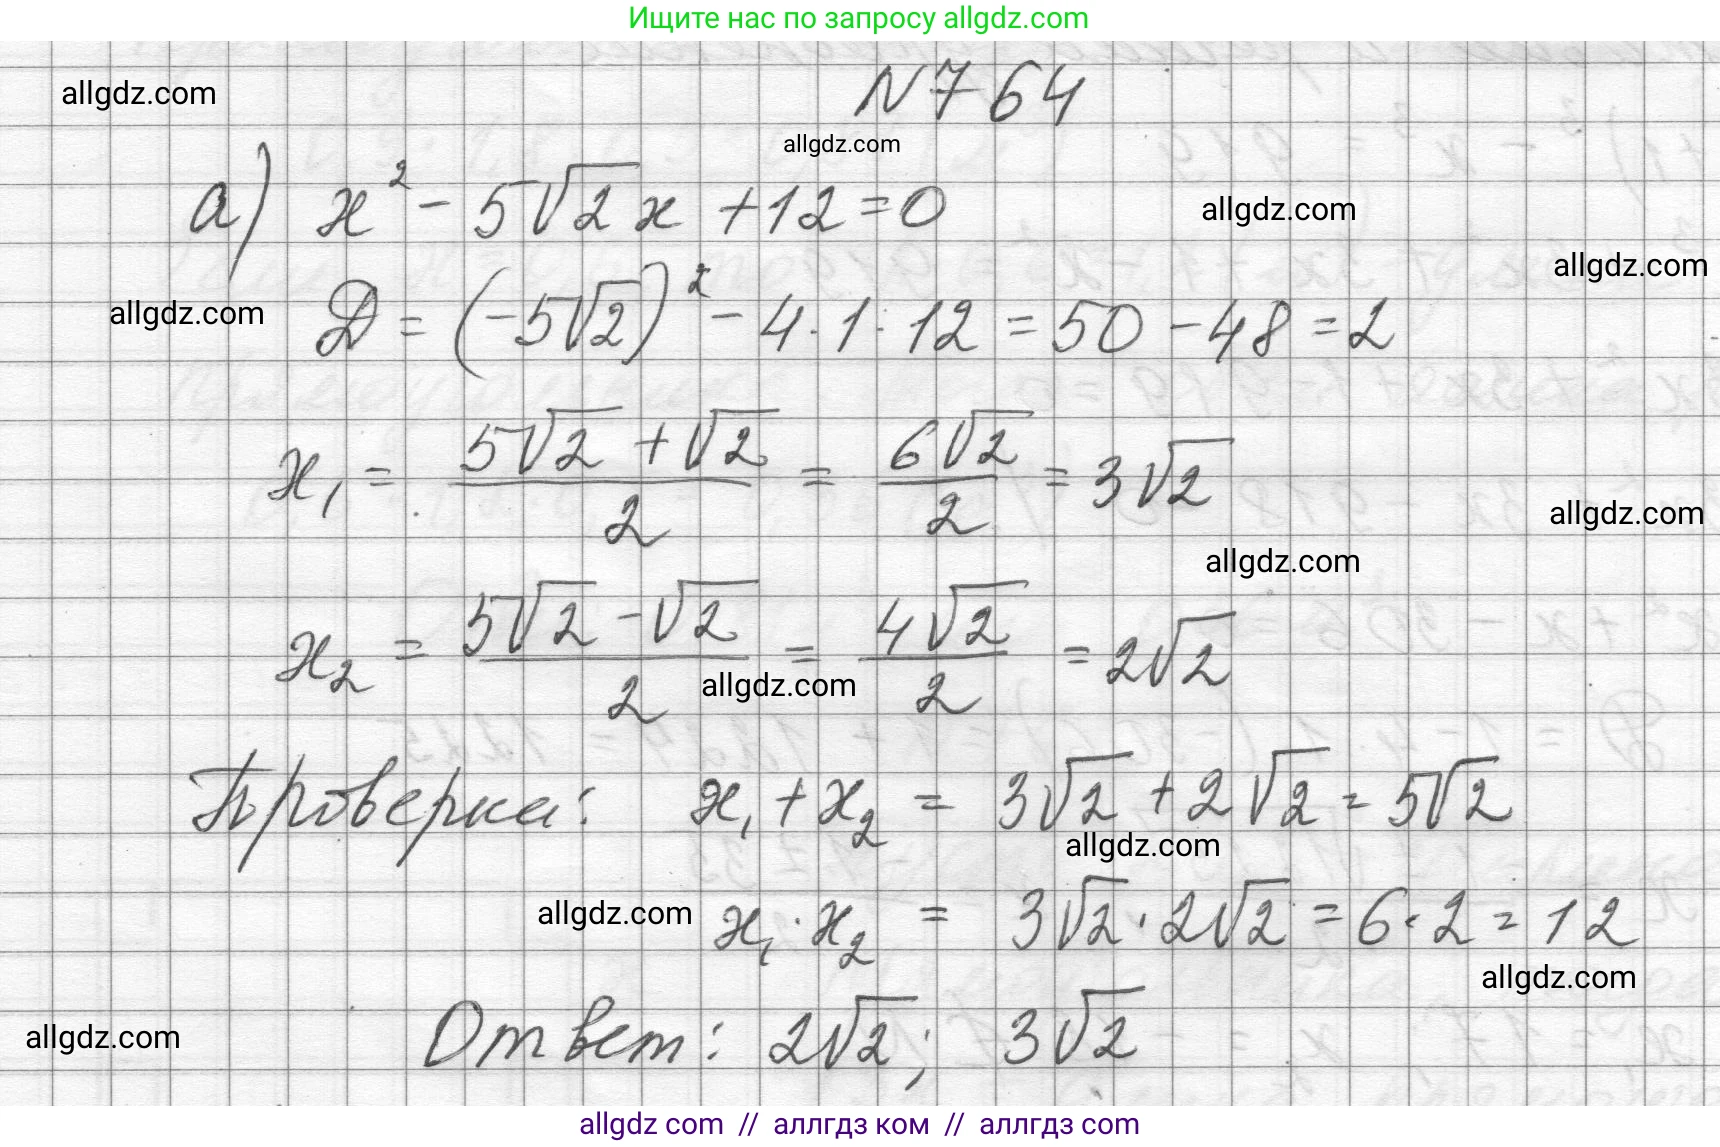 Ищите нас по запросу allgdz.com
allgdz.com
N 764
allgdz.com
а) x² - 5√2 x + 12 = 0
allgdz.com
allgdz.com
allgdz.com
Д = (-5√2)² - 4 · 1 · 12 = 50 - 48 = 2
x₁ = (5√2 + √2)/2 = 6√2/2 = 3√2
allgdz.com
allgdz.com
x₂ = (5√2 - √2)/2 = 4√2/2 = 2√2
allgdz.com
Проверка: x₁ + x₂ = 3√2 + 2√2 = 5√2
allgdz.com
allgdz.com
x₁ · x₂ = 3√2 · 2√2 = 6 · 2 = 12
allgdz.com
allgdz.com
Ответ: 2√2; 3√2
allgdz com // аллгдз ком // allgdz.com